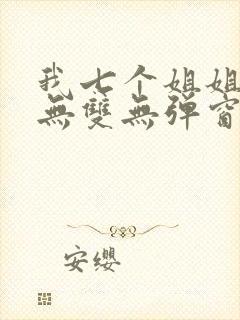 我七个姐姐
無雙無彈窗
安缨